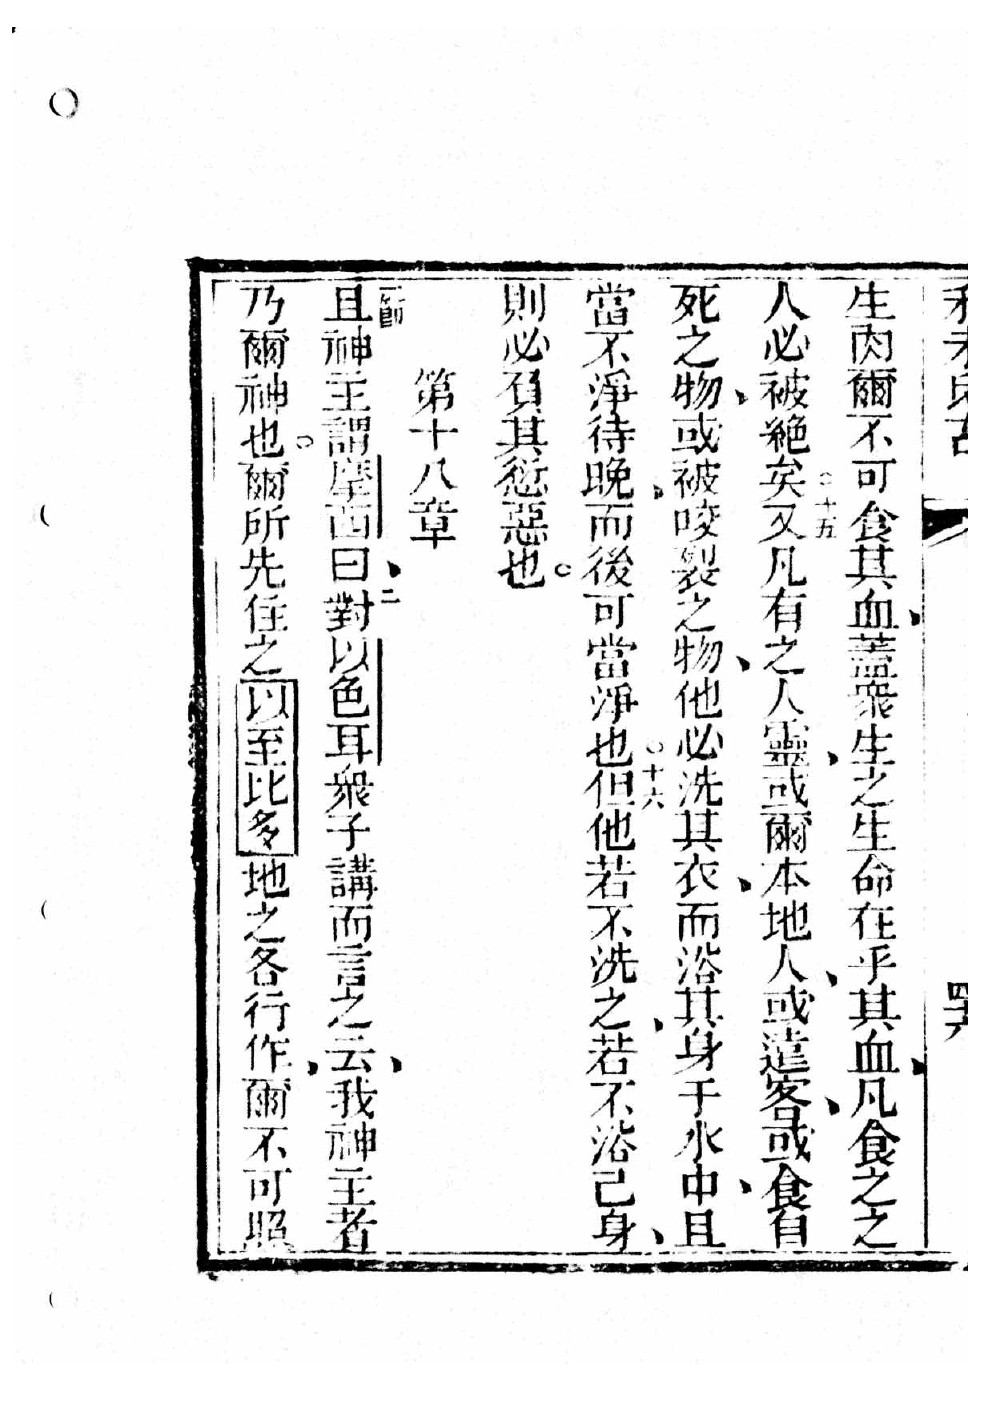 利未氏古
四六
生肉爾不可食其血、蓋衆生之生命在乎其血、凡食之之
人必被絕矣○十五又凡有之人靈、或爾本地人、或遠客、或食自
死之物、或被咬裂之物、他必洗其衣、而浴其身于水中、且
當不淨待晚、而後可當淨也○十六但他若不洗之、若不浴己身、
則必負其愆惡也○
第十八章
一節且神主謂摩西曰、二對以色耳衆子講而言之云、我神主者
乃爾神也○爾所先住之以至比多地之各行作、爾不可照